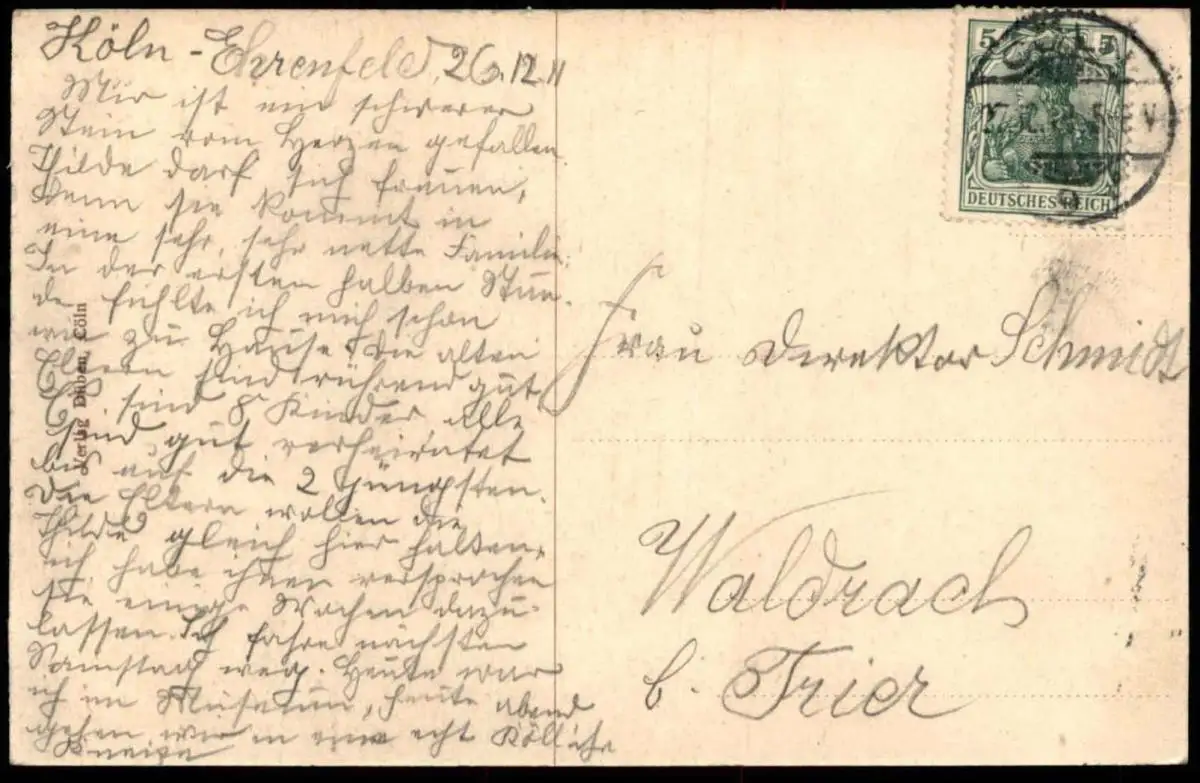 Köln-Ehrenfeld, 26.12.11
Mir ist ein schwerer
Stein vom Herzen gefallen.
Thilde darf sich freuen,
denn sie kommt in
eine sehr, sehr nette Familie.
In der ersten halben Stun-
de fühlte ich mich schon
wie zu Hause. Die alten
Eltern sind rührend gut
Es sind 8 Kinder. Alle
sind gut verheiratet
bis auf die 2 jüngsten.
Die Eltern wollen die
Thilde gleich hier halten,
ich habe ihnen versprochen
sie einige Wochen dazu-
lassen. Ich fahre nächsten
Samstag weg. Heute war
ich im Museum, heute abend
gehen wir in eine echt Kölliche
Kneipe
Verlag Dülben, Cöln
5 5
DEUTSCHES REICH
Frau Direktor Schmidt
Waldrach
b. Trier